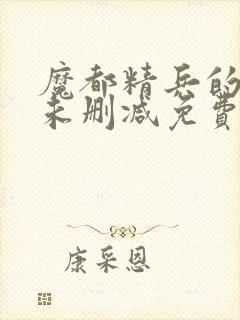 魔都精兵的
未删减免費
康采恩